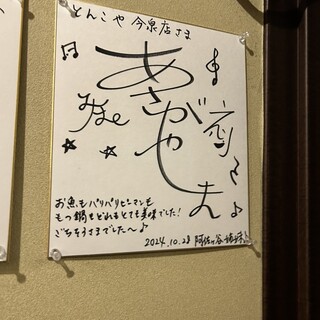 とんこや 今泉店さま
あさがやしまい
みほ
えりこ
お魚もパリパリピーマンも
もつ鍋もどれもとても美味でした！
ごちそうさまでした〜♪
2024.10.28 阿佐ヶ谷姉妹